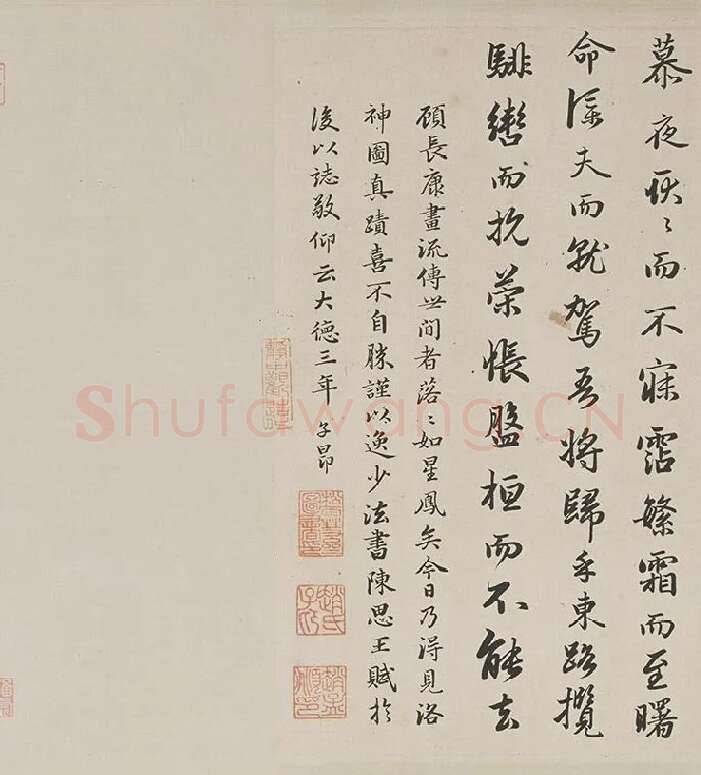 慕夜耿〻而不寐霑繁霜而至曙
命僕夫而就駕吾將歸乎東路攬
騑轡而抗策悵盤桓而不能去
顧長康畫流傳世間者落〻如星鳳矣今日乃得見洛
神圖真蹟喜不自勝謹以逸少法書陳思王賦於
後以誌敬仰云大德三年 子昂
趙氏子昂
趙孟頫印
Shufawang.CN